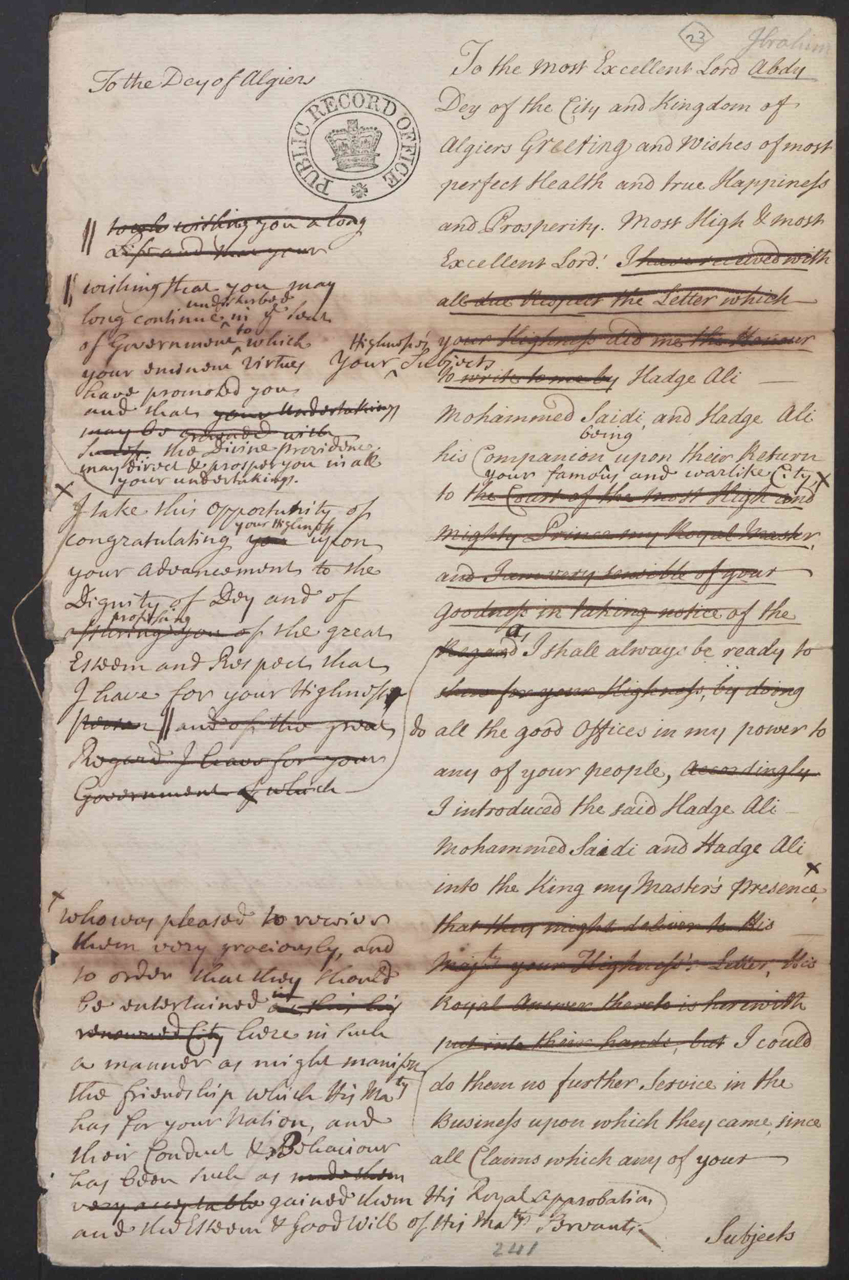 23
Ibrahim
To the Dey of Algiers
PUBLIC RECORD OFFICE
wishing you a long
Life and that your
wishing that you may
long continue undisturbed in ye Seat
of Government to which
your eminent Virtues
have promoted you
and that your Undertakings
may be crowned with
Success. the Divine Providence
may direct & prosper you in all
your undertakings.
x
I take this opportunity of
congratulating you your Highness upon
your advancement to the
Dignity of Dey and of
assuring you of professing the great
Esteem and Respect that
I have for your Highness
person and of the great
Regard I have for your
Government of which
x
who was pleased to receive
them very graciously, and
to order that they should
be entertained in at this his
renowned City here in such
a manner as might manifest
the friendship which His Maty
has for your Nation, and
their Conduct & Behaviour
has been such as made them
very acceptable gained them His Royal Approbation
and the Esteem & Good Will of His Maty's Servants.
To the Most Excellent Lord Abdy
Dey of the City and Kingdom of
Algiers Greeting and Wishes of most
perfect Health and true Happiness
and Prosperity. Most High & most
Excellent Lord! I have received with
all due Respect the Letter which
your Highness did me the Honour
Your Highness's Subjects
to write to me by Hadge Ali
Mohammed Saidi and Hadge Ali
his Companion being upon their Return
your famous and warlike City, x
to the Court of the most High and
Mighty Prince my Royal Master,
and I am very sensible of your
goodness in taking notice of the
Regard I shall always be ready to
show for your Highness, by doing
do all the good Offices in my power to
any of your people, Accordingly
I introduced the said Hadge Ali
Mohammed Saidi and Hadge Ali
into the King my Master's presence, x
that they might deliver to His
Majty your Highness's Letter, His
Royal Answer thereto is herewith
put into their hands, but I could
do them no further Service in the
Business upon which they came, since
all Claims which any of your
Subjects
241